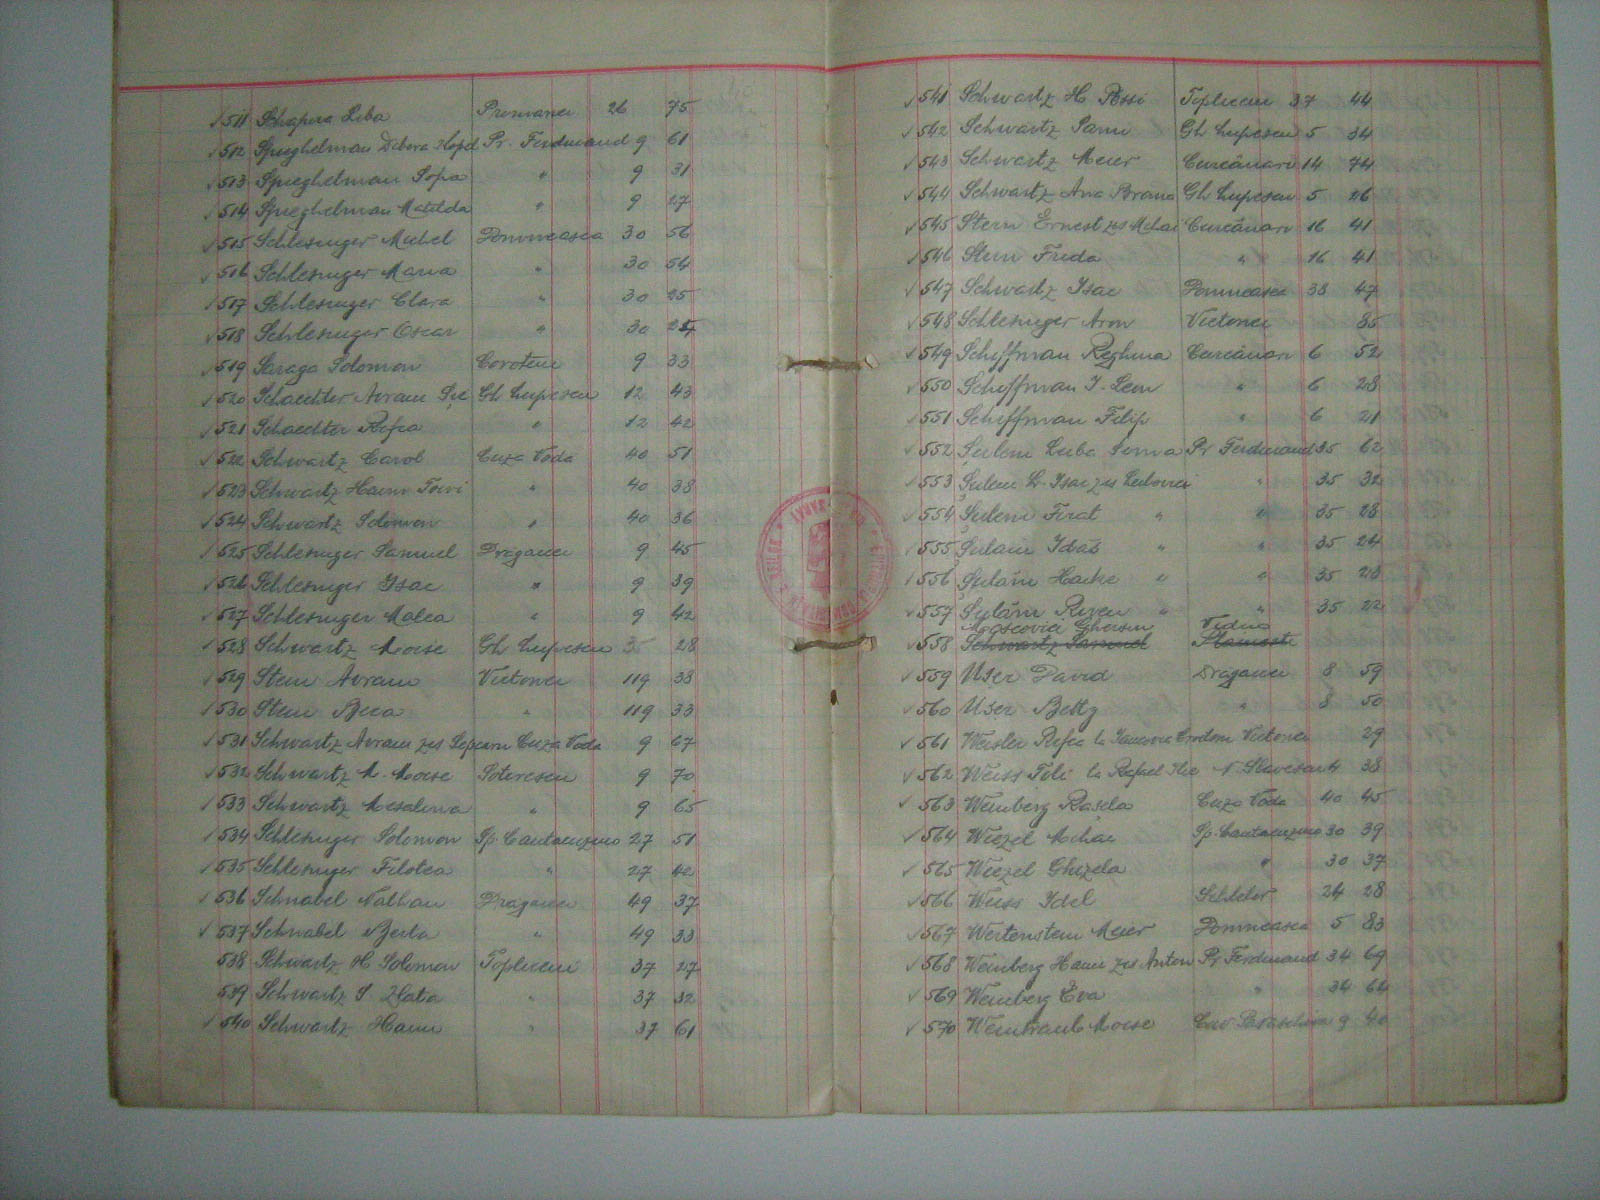 511 Shapira Liba Primariei 26 75
512 Spieghelman Debora Pr. Ferdinand 9 61
513 Spieghelman Sofia " 9 31
514 Spieghelman Matilda " 9 27
515 Schlesinger Michel Domneasca 30 56
516 Schlesinger Maria " 30 54
517 Schlesinger Clara " 30 25
518 Schlesinger Oscar " 30
519 Saraga Solomon Coroteni 9 33
520 Schaechter Avram Gh Lupescu 12 43
521 Schaechter Rifca " 12 42
522 Schwartz Carol Cuza Voda 40 51
523 Schwartz Haim " 40 38
524 Schwartz Solomon " 40 36
525 Schlesinger Samuel Draganei 9 45
526 Schlesinger Isac " 9 39
527 Schlesinger Malca " 9 42
528 Schwartz Moise Gh Lupescu 28
529 Stein Avram Victoriei 119 38
530 Stein Beca " 119 33
531 Schwartz Avram zis Cuza Voda 9 67
532 Schwartz M. Moise Soterescu 9 70
533 Schwartz " 9 65
534 Schlesinger Solomon Sp. Cantacuzino 27 51
535 Schlesinger Filotea " 27 42
536 Schnabel Nathan Draganei 49 37
537 Schnabel Berta " 49 33
538 Schwartz H Solomon Topliceni 37 27
539 Schwartz S. Zlata " 37 32
540 Schwartz Haim " 37 61
541 Schwartz H Topliceni 37 44
542 Schwartz Sami Gh Lupescu 5 34
543 Schwartz Meier Curcănari 14 74
544 Schwartz Ana Brana Gh Lupescu 5 26
545 Stern Ernest zis Mihai Curcănari 16 41
546 Stern Frida " 16 41
547 Schwartz Isac Domneasca 38 47
548 Schlesinger Aron Victoriei 85
549 Schiffman Reghina Curcănari 6 52
550 Schiffman I. Leon " 6 28
551 Schiffman Filip " 6 21
552 Șulem Luba Pr Ferdinand 35 62
553 Șulem Isac zis " 35 32
554 Șulem " " 35 28
555 Șulam " " 35 24
556 Șulăm " " 35 28
557 Șulăm " " 35 22
Moscovici Ghersin
558 Schwartz Samuel
559 User David Draganei 8 59
560 User Betty " 8 50
561 Weisler Rifca Victoriei 29
562 Weiss Rafael 38
563 Weinberg Rasela Cuza Voda 40 45
564 Wiezel Mihai Sp. Cantacuzino 30 39
565 Wiezel Ghizela " 30 37
566 Weiss Idel 24 28
567 Wertenstein Meier Domneasca 5 83
568 Weinberg Haim zis Anton Pr Ferdinand 34 69
569 Weinberg Eva " 34 64
570 Weintraub Moise 9